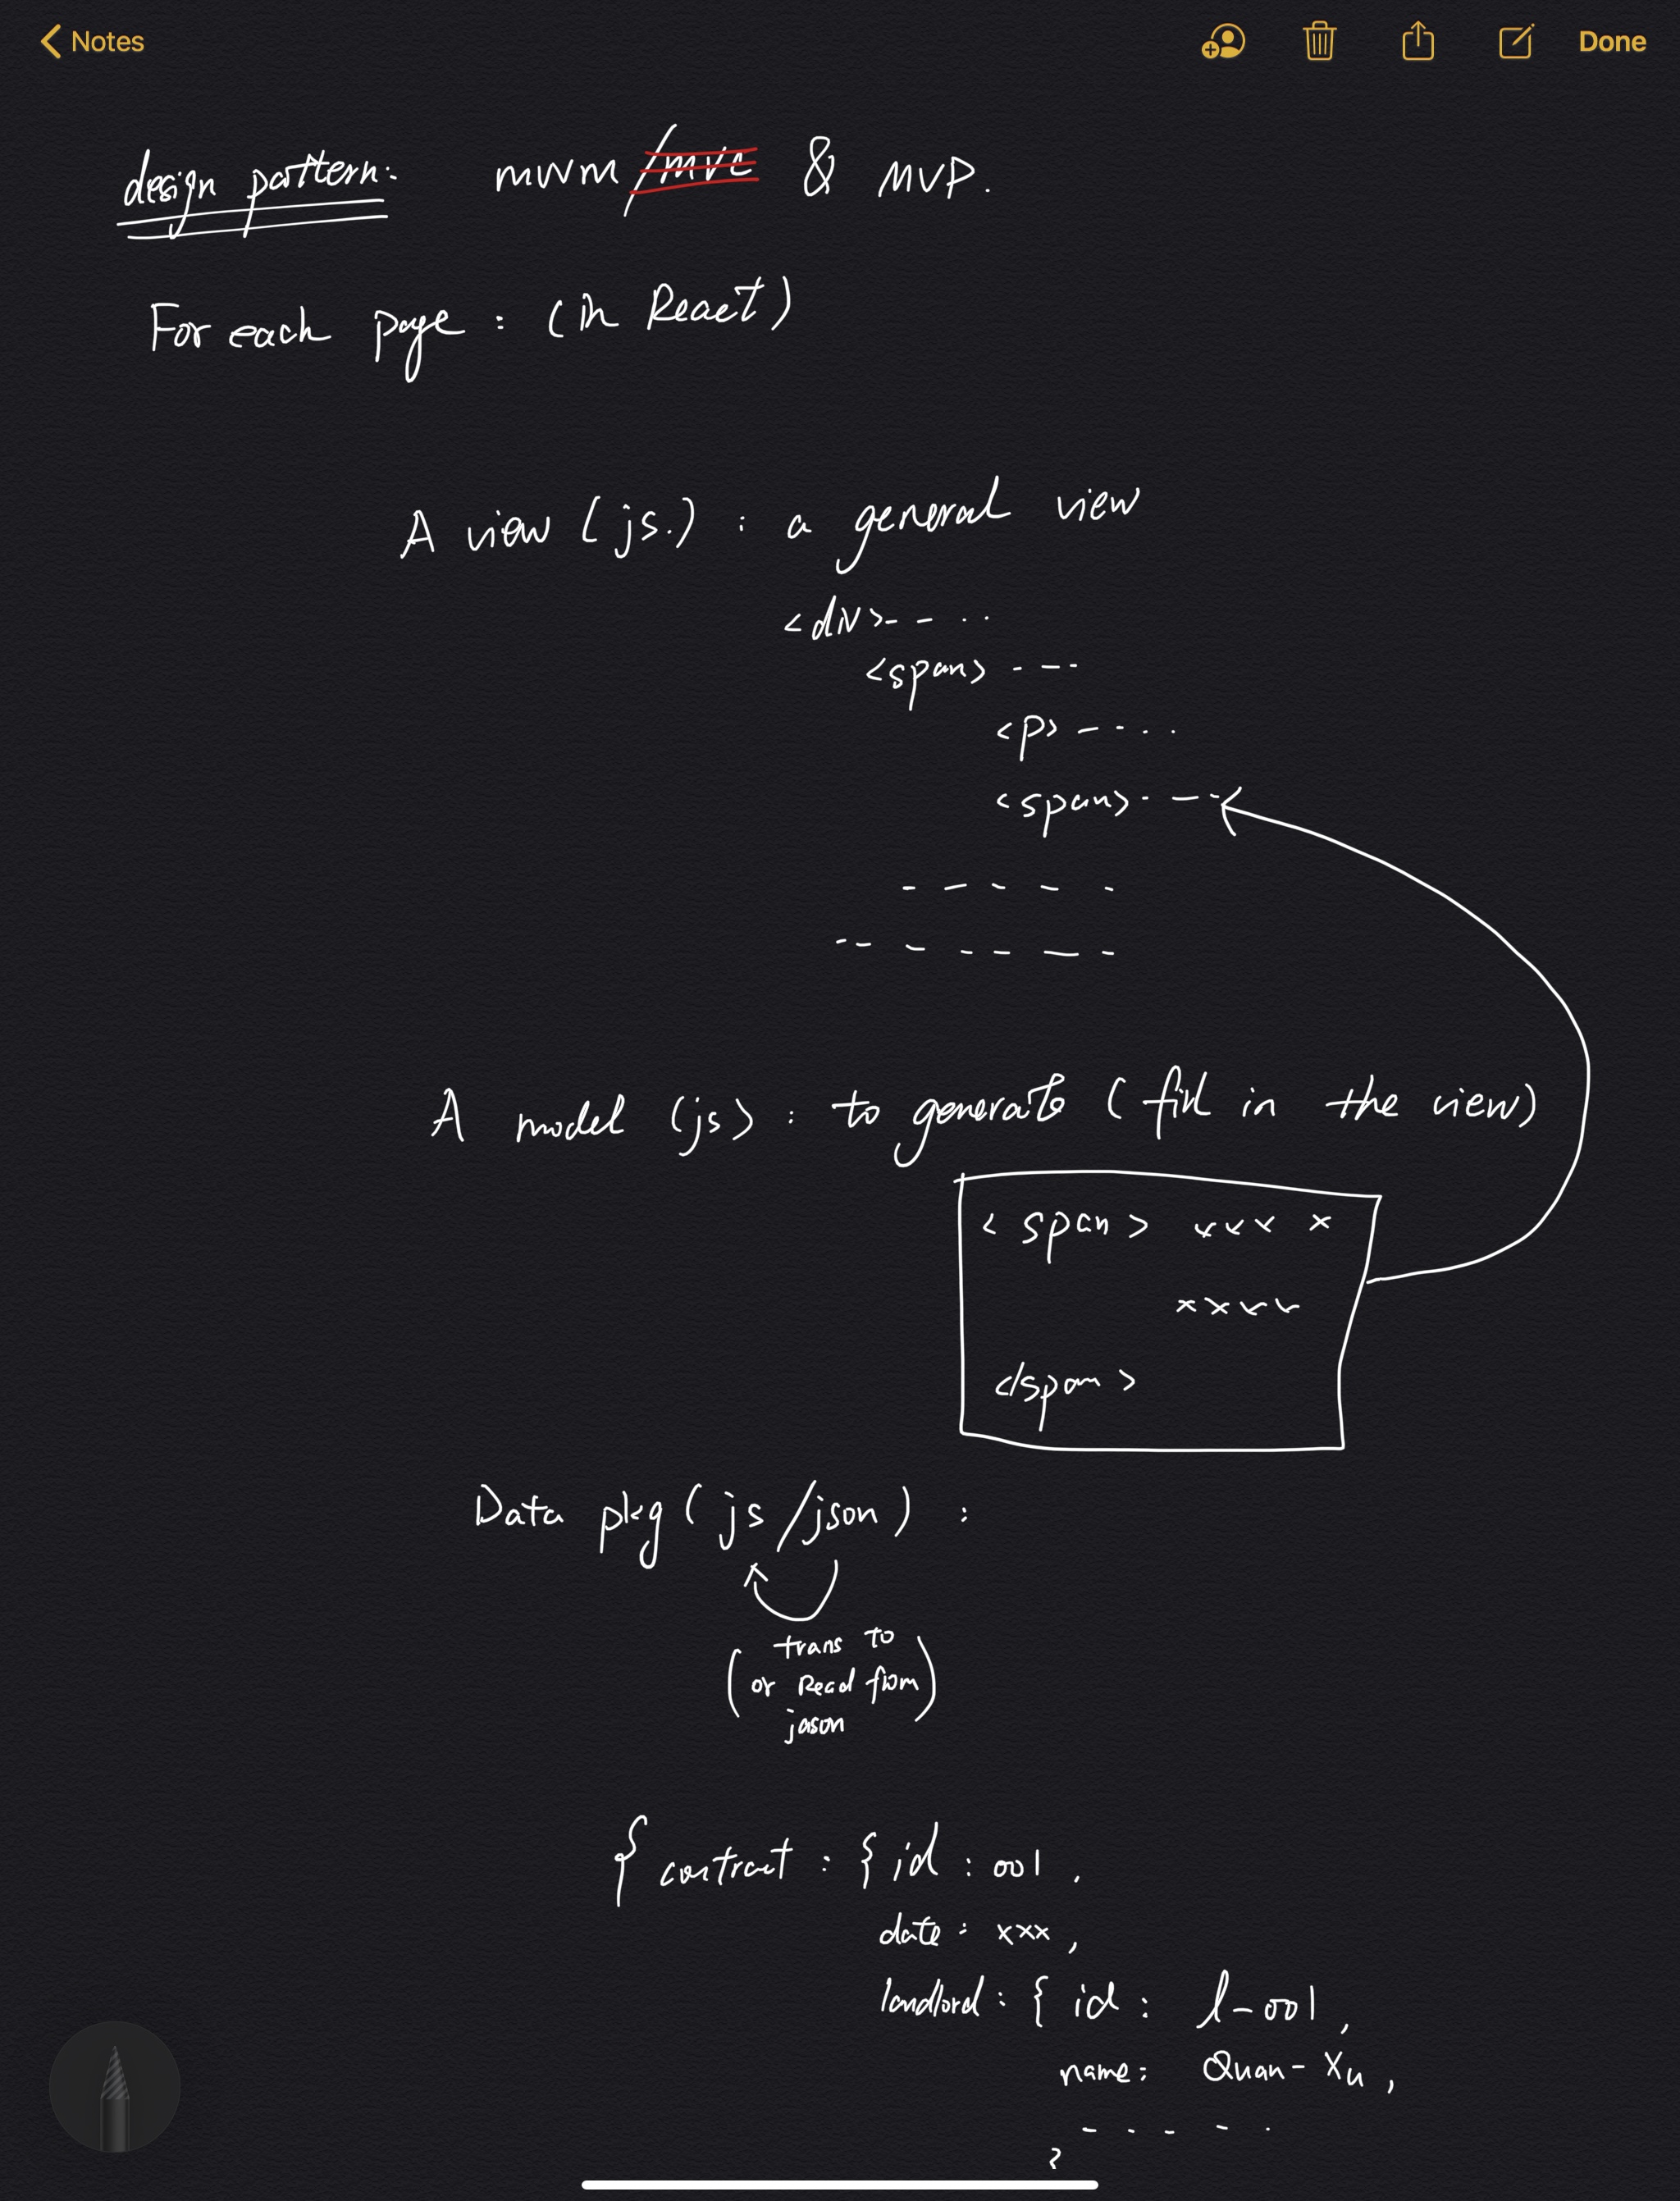 Notes
Done
design pattern: mvvm /mvc & MVP.
For each page : (in React)
A view (js.) : a general view
<div>-- -- . . .
<span> - ---
<p> -- - . . .
<span>- -- -
- - - - -
-- - - - - -
A model (js) : to generate ( fill in the view)
< span > xxx x
xxxx
</span >
Data pkg ( js /json ) :
( trans to
or Read from )
jason
{ contract : { id : 001 ,
date : xxx ,
landlord : { id : l-001 ,
name : Quan- Xu ,
- - - - - .
}